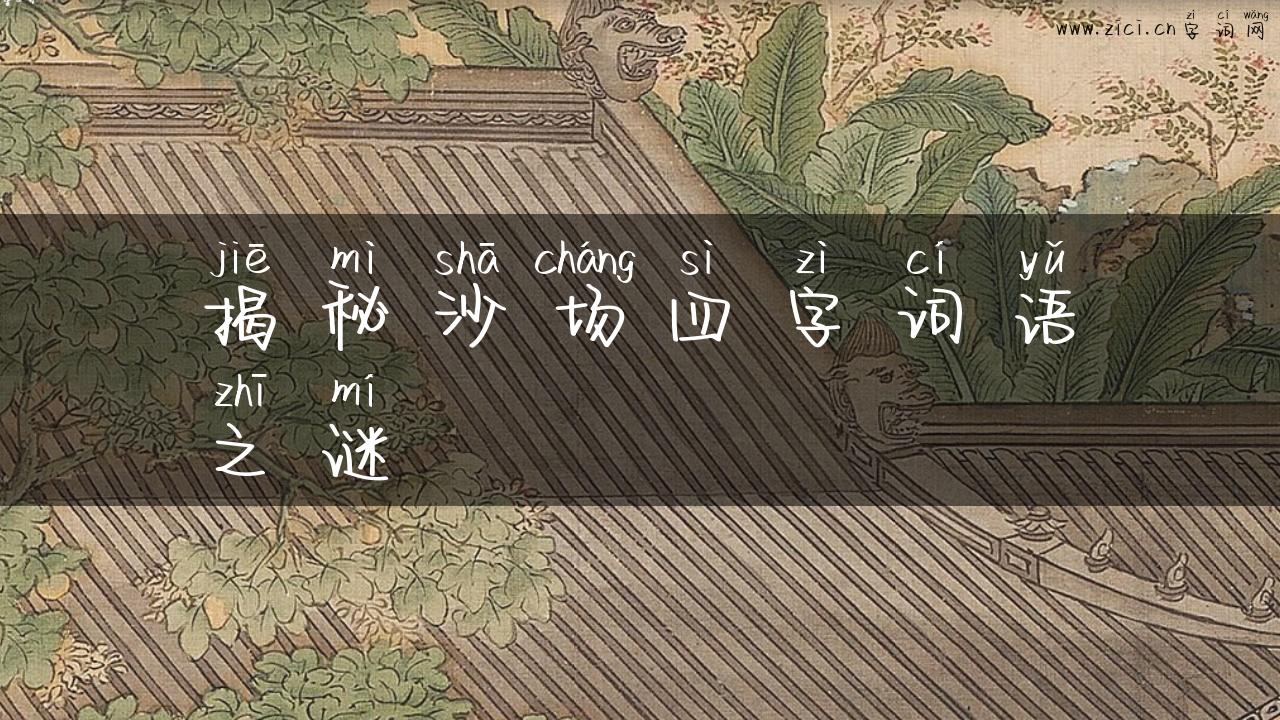 zì cí wǎng
www.zici.cn 字 词 网
jiē mì shā cháng sì zì cí yǔ
揭 秘 沙 场 四 字 词 语
zhī mí
之 谜